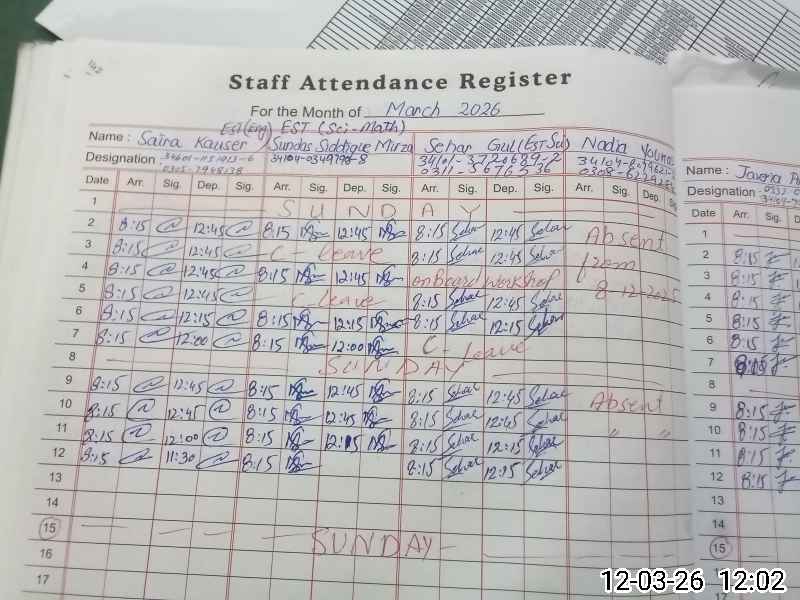 Staff Attendance Register
For the Month of March 2026
EST(Eng) EST (Sci-Math)
Name : Saira Kauser Sundas Siddique Mirza Sehar Gul (EST Sci) Nadia Name : Javeria
Designation 34104-0349798-8 34101-3720689-2 Designation
0311-5676536
Date Arr. Sig. Dep. Sig. Arr. Sig. Dep. Sig. Arr. Sig. Dep. Sig. Arr. Sig. Dep. Sig. Date Arr. Sig.
1 SUNDAY 1
2 8:15 12:45 8:15 12:45 8:15 Sehar 12:45 Sehar Absent 2 8:15
3 8:15 12:45 C-leave 8:15 Sehar 12:45 Sehar from 3 8:15
4 8:15 12:45 8:15 12:45 onBoard workshop 8-12-2025 4 8:15
5 8:15 12:45 C-leave 8:15 Sehar 12:45 Sehar 5 8:15
6 8:15 12:15 8:15 12:15 8:15 Sehar 12:15 Sehar 6 8:15
7 8:15 12:00 8:15 12:00 C-leave 7 8:15
8 SUNDAY 8
9 8:15 12:45 8:15 12:45 8:15 Sehar 12:45 Sehar Absent 9 8:15
10 8:15 12:45 8:15 12:45 8:15 Sehar 12:45 Sehar " " 10 8:15
11 8:15 12:00 8:15 12:15 8:15 Sehar 12:15 Sehar 11 8:15
12 8:15 11:30 8:15 8:15 Sehar 12:15 Sehar 12 8:15
13 13
14 14
15 SUNDAY 15
16 16
17 17
12-03-26 12:02